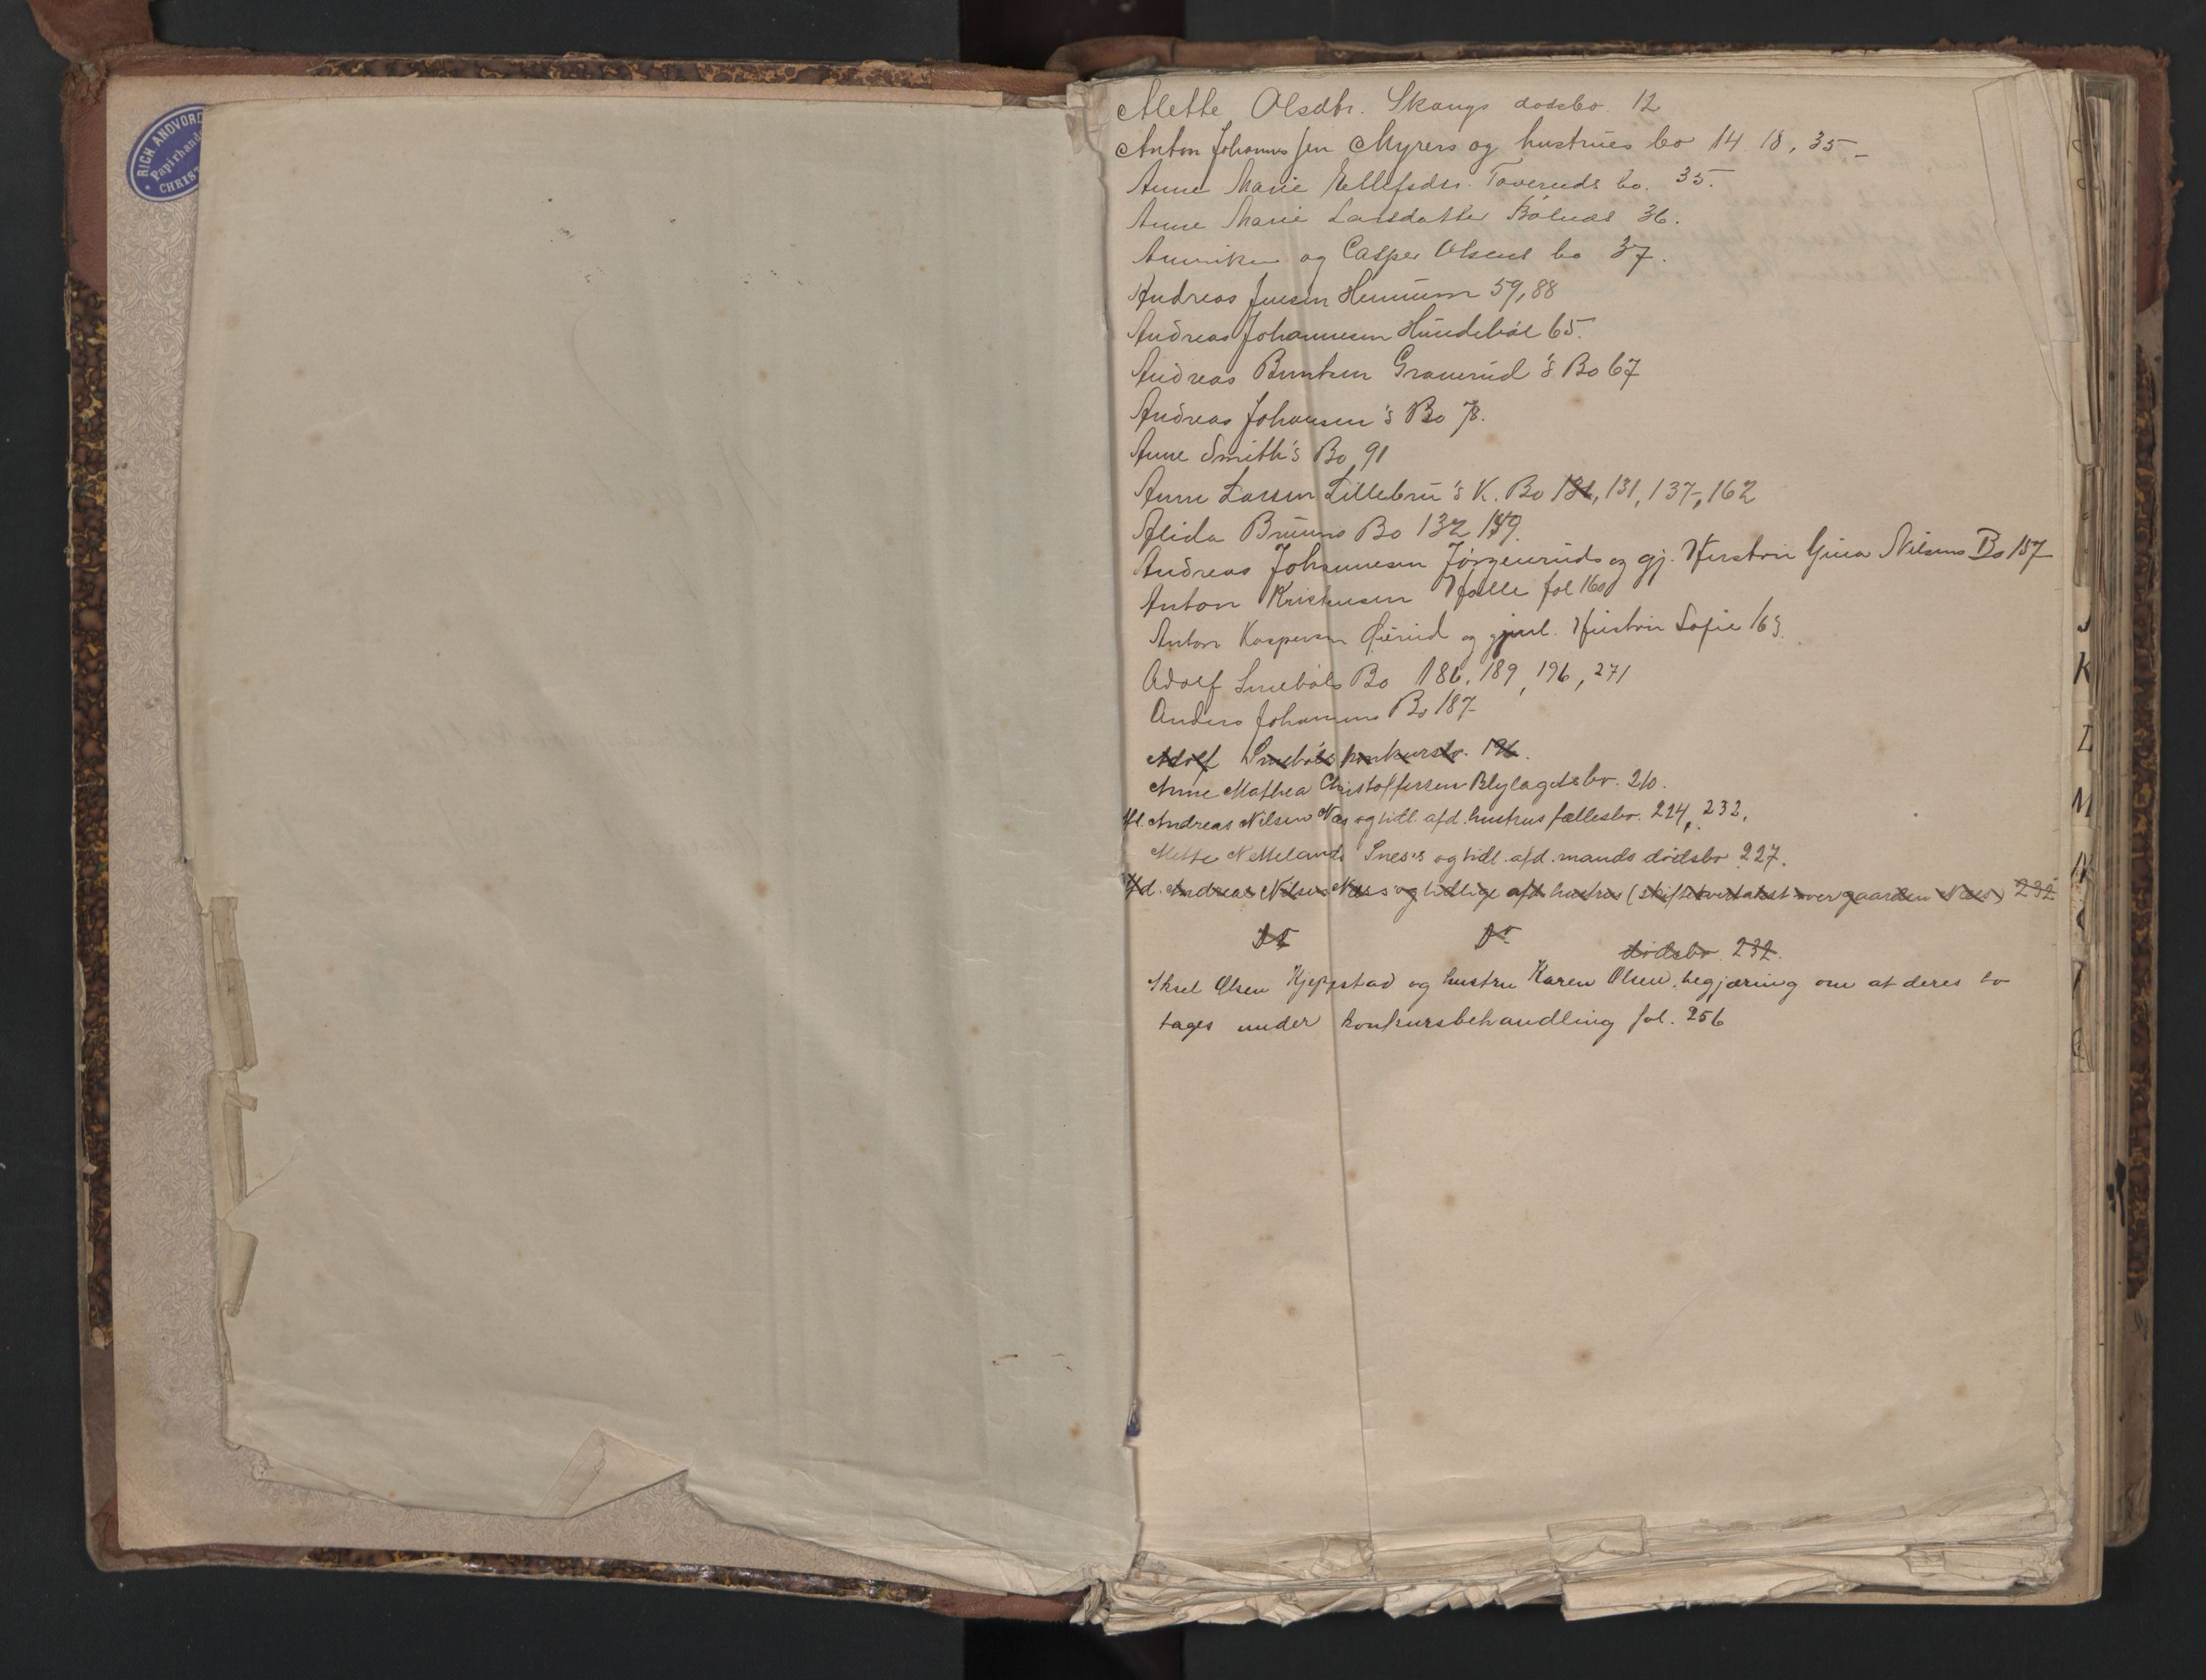 RICH ANDVORD
Papirhand
CHRIST
Alette Olsdtr. Skaugs dødsbo. 12
Anton Johannessen Myrers og hustrues bo 14 18, 35-
Anne Marie Ellefsdtr. Taveruds bo. 35.
Anne Marie Larsdatter Bølnæs 36.
Anniken og Casper Olsens bo 37.
Andreas Jensen Hennum 59, 88
Andreas Johannesen Hundebøl 65.
Andreas Berntsen Graverud's Bo 67
Andreas Johansen's Bo 78.
Anne Smith's Bo 91
Anne Larsen Lillebru's K. Bo 131, 137, 162
Alida Bruuns Bo 132 159.
Andreas Johannesen Jørgenruds og gj. Hustru Gina Nilsens Bo 157
Anton Kristensen Halle fol 160
Anton Kaspersen Øierud og gjenl. Hustru Sofie 163.
Adolf Smebøls Bo 186, 189, 196, 271
Anders Johannesens Bo 187
Adolf Smebøls konkursbo. 196.
Anne Mathea Christoffersen Blylagets bo. 210.
Afd. Andreas Nilsen Næs og tidl. afd. hustrus fællesbo. 224, 232.
Mette Snes's og tidl. afd. mands dødsbo 227.
Afd. Andreas Nilsen Næss's og tidlige afd. hustrus (skiftekvertakst over gaarden Næs) 232
Do Do dødsbo. 232.
Aksel Olsen Kjeppstad og hustru Karen Olsen, begjæring om at deres bo
tages under konkursbehandling fol. 256
J
K
L
M
N